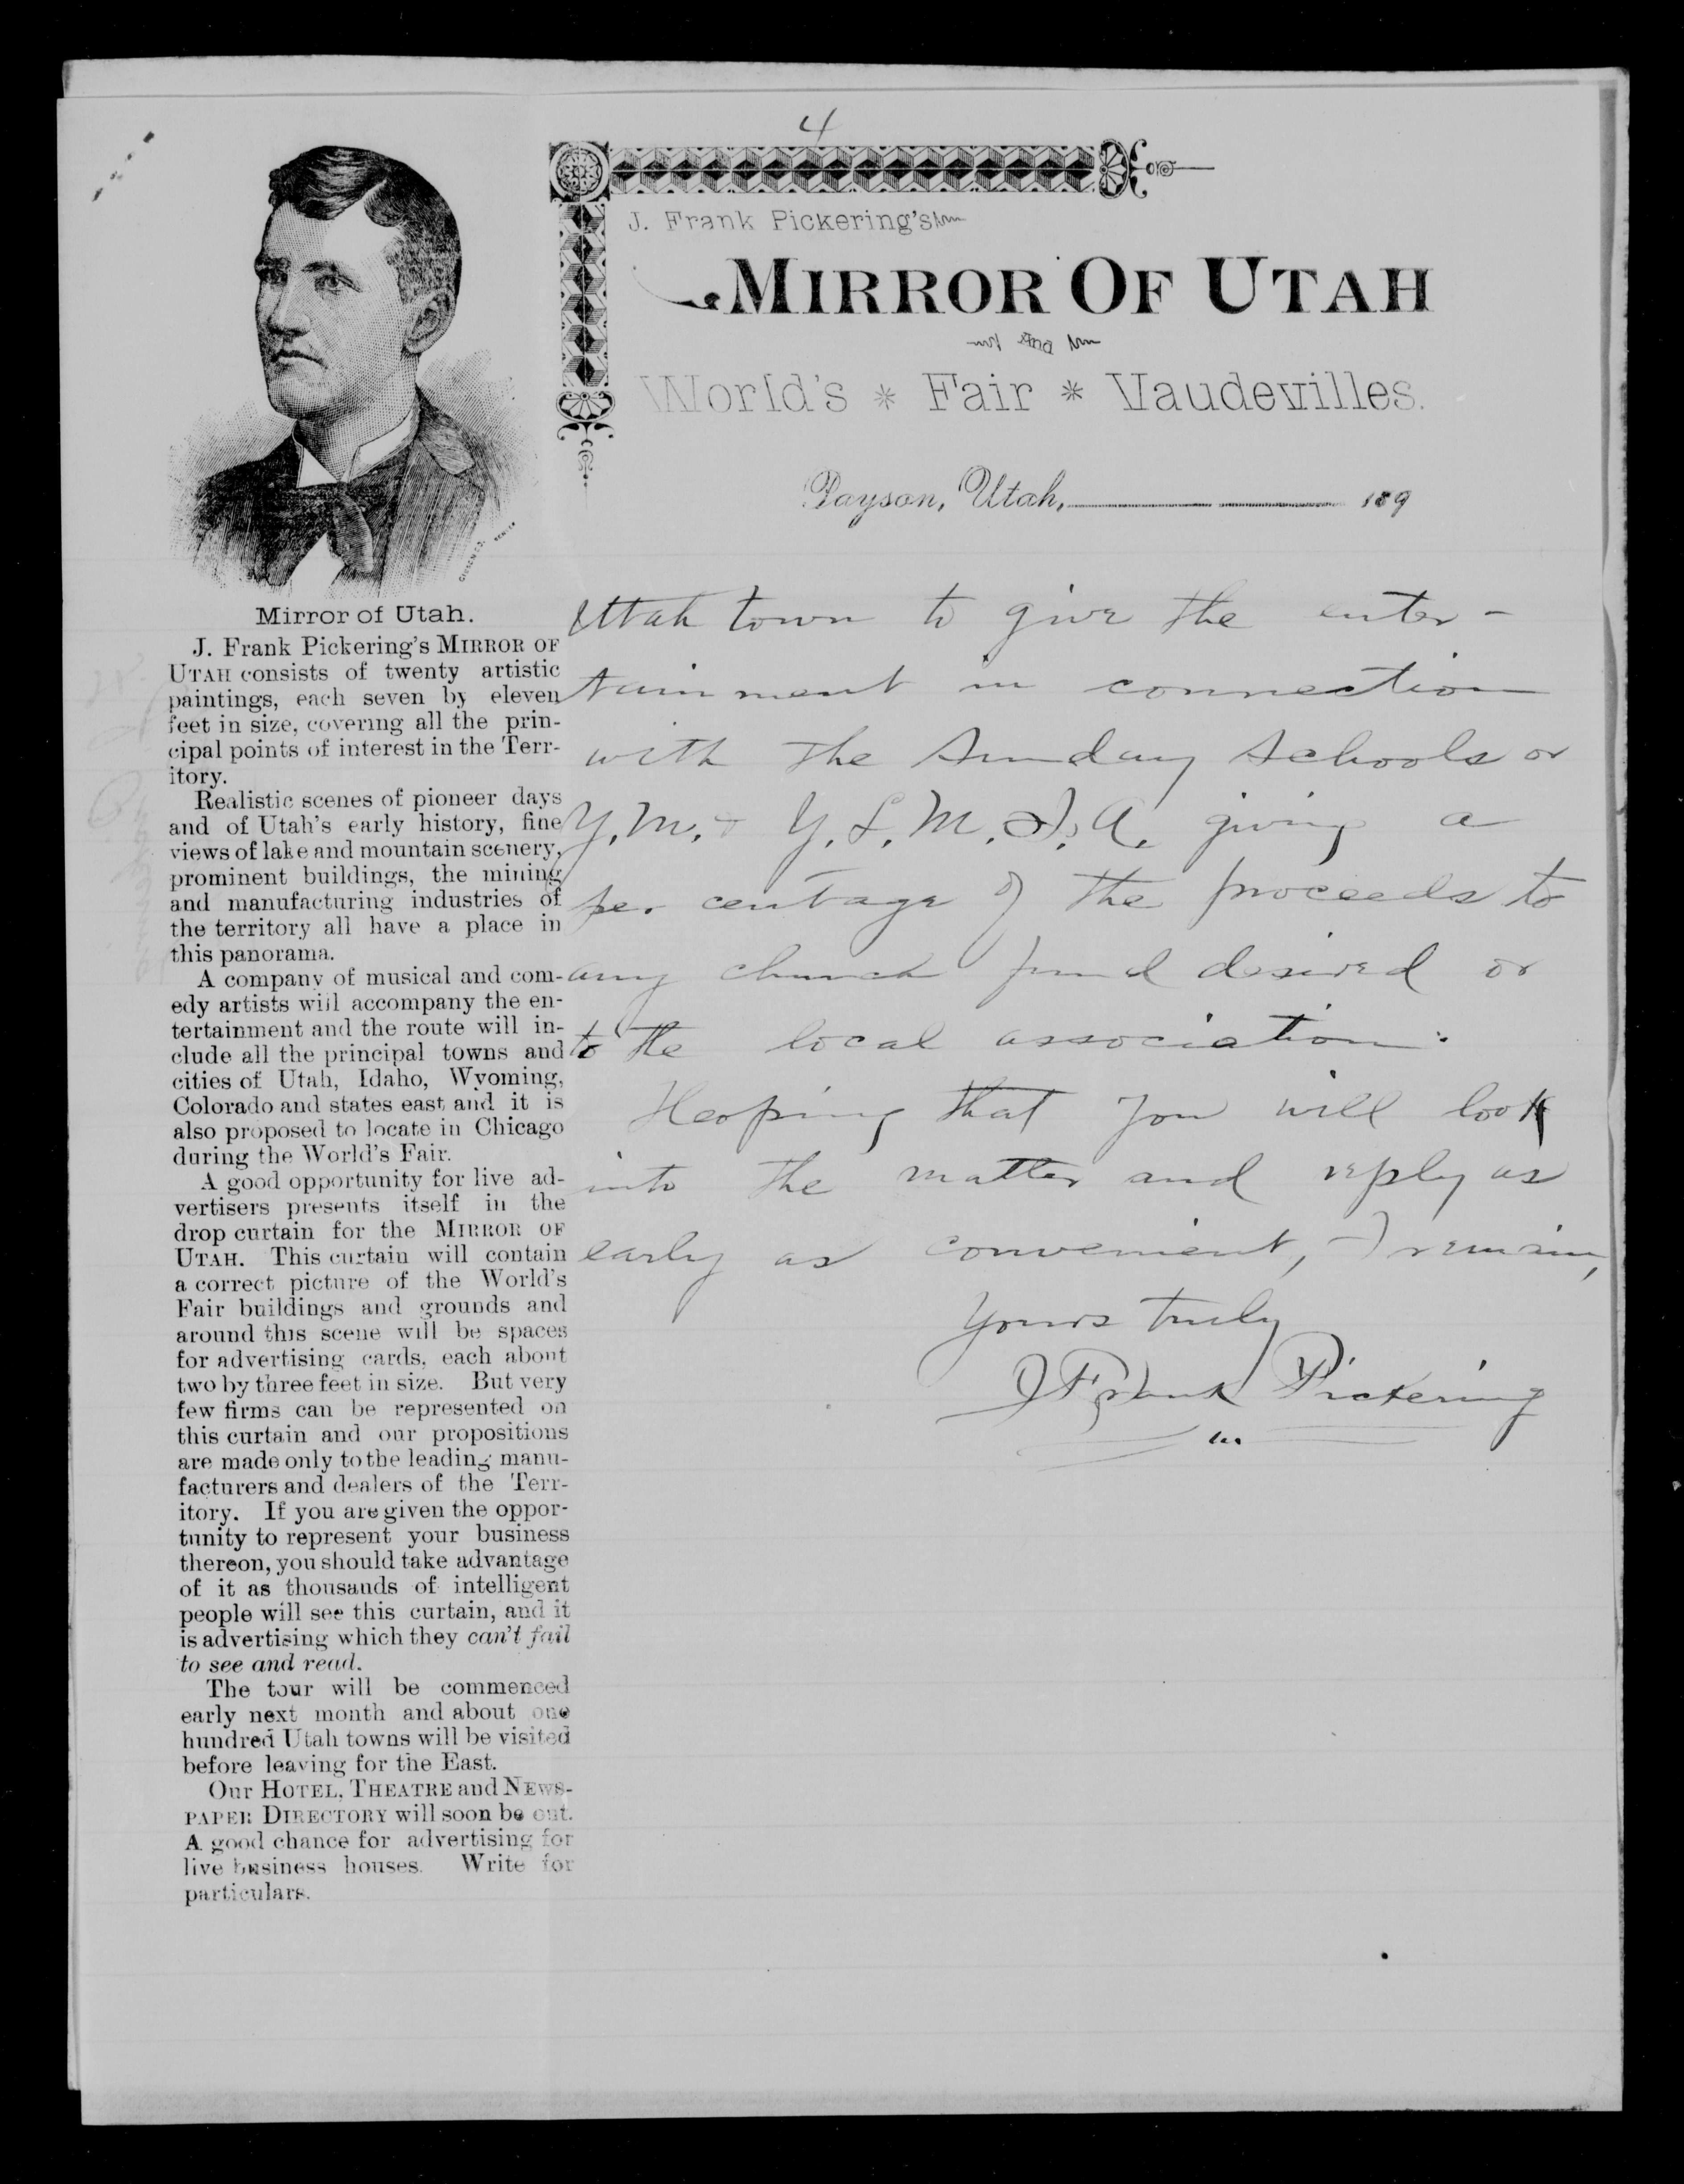 4
J. Frank Pickering's
MIRROR OF UTAH
and
World's * Fair * Vaudevilles.
Payson, Utah, 189
Mirror of Utah.
J. Frank Pickering's MIRROR OF
UTAH consists of twenty artistic
paintings, each seven by eleven
feet in size, covering all the prin-
cipal points of interest in the Terr-
itory.
Realistic scenes of pioneer days
and of Utah's early history, fine
views of lake and mountain scenery,
prominent buildings, the mining
and manufacturing industries of
the territory all have a place in
this panorama.
A company of musical and com-
edy artists will accompany the en-
tertainment and the route will in-
clude all the principal towns and
cities of Utah, Idaho, Wyoming,
Colorado and states east and it is
also proposed to locate in Chicago
during the World's Fair.
A good opportunity for live ad-
vertisers presents itself in the
drop curtain for the MIRROR OF
UTAH. This curtain will contain
a correct picture of the World's
Fair buildings and grounds and
around this scene will be spaces
for advertising cards, each about
two by three feet in size. But very
few firms can be represented on
this curtain and our propositions
are made only to the leading manu-
facturers and dealers of the Terr-
itory. If you are given the oppor-
tunity to represent your business
thereon, you should take advantage
of it as thousands of intelligent
people will see this curtain, and it
is advertising which they can't fail
to see and read.
The tour will be commenced
early next month and about one
hundred Utah towns will be visited
before leaving for the East.
Our HOTEL, THEATRE and NEWS-
PAPER DIRECTORY will soon be out.
A good chance for advertising for
live business houses. Write for
particulars.
Utah town to give the enter-
tainment in connection
with the Sunday Schools or
Y.M. & Y.L.M.I.A. giving a
per centage of the proceeds to
any church fund desired or
to the local association.
Hoping that you will look
into the matter and reply as
early as convenient, I remain,
Yours truly
J Frank Pickering